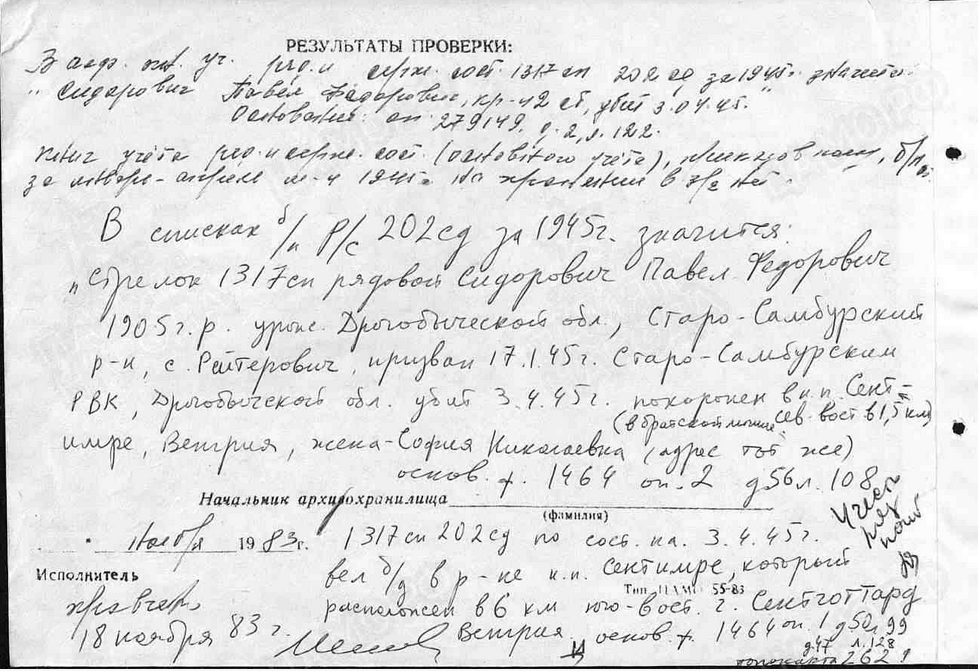 РЕЗУЛЬТАТЫ ПРОВЕРКИ:
В алф. кн. уч. ряд. и серж. сост. 1317 сп 202 сд за 1945г. значится:
"Сидарович Павел Федорович, кр-ц 2 сб, убит 3.04.45."
Основание: оп. 279149, д. 2, л. 122.
Книг учета ряд. и серж. сост. (основного учета), приказов
за январь-апрель м-ц 1945г. на хранении в нет.
В списках б/п Р/С 202сд за 1945г. значится:
"Стрелок 1317сп рядовой Сидорович Павел Федорович
1905г.р. урож. Дрогобыческой обл., Старо-Самбурский
р-н, с. Рейтерович, призван 17.1.45г. Старо-Самбурским
РВК, Дрогобыческой обл. убит 3.4.45г. похоронен в н.п. Сент-
(в братской могиле сев. вост в 1,5 км)
имре, Венгрия, жена-София Николаевна (адрес тот же)
основ. ф. 1464 оп. 2 д 56 л. 108
Начальник архивохранилища
(фамилия)
Учесть
Ноября 1983г.
1317сп 202сд по сост. на 3.4.45г.
вел б/д в р-не н.п. Сентимре, который
Исполнитель
Тип. ЦАМО 55-83
расположен в 6 км юго-вост. г. Сентготтард
18 ноября 83г.
Венгрия. основ. ф. 1464 оп. 1 д 50 л 99
д 47 л. 128